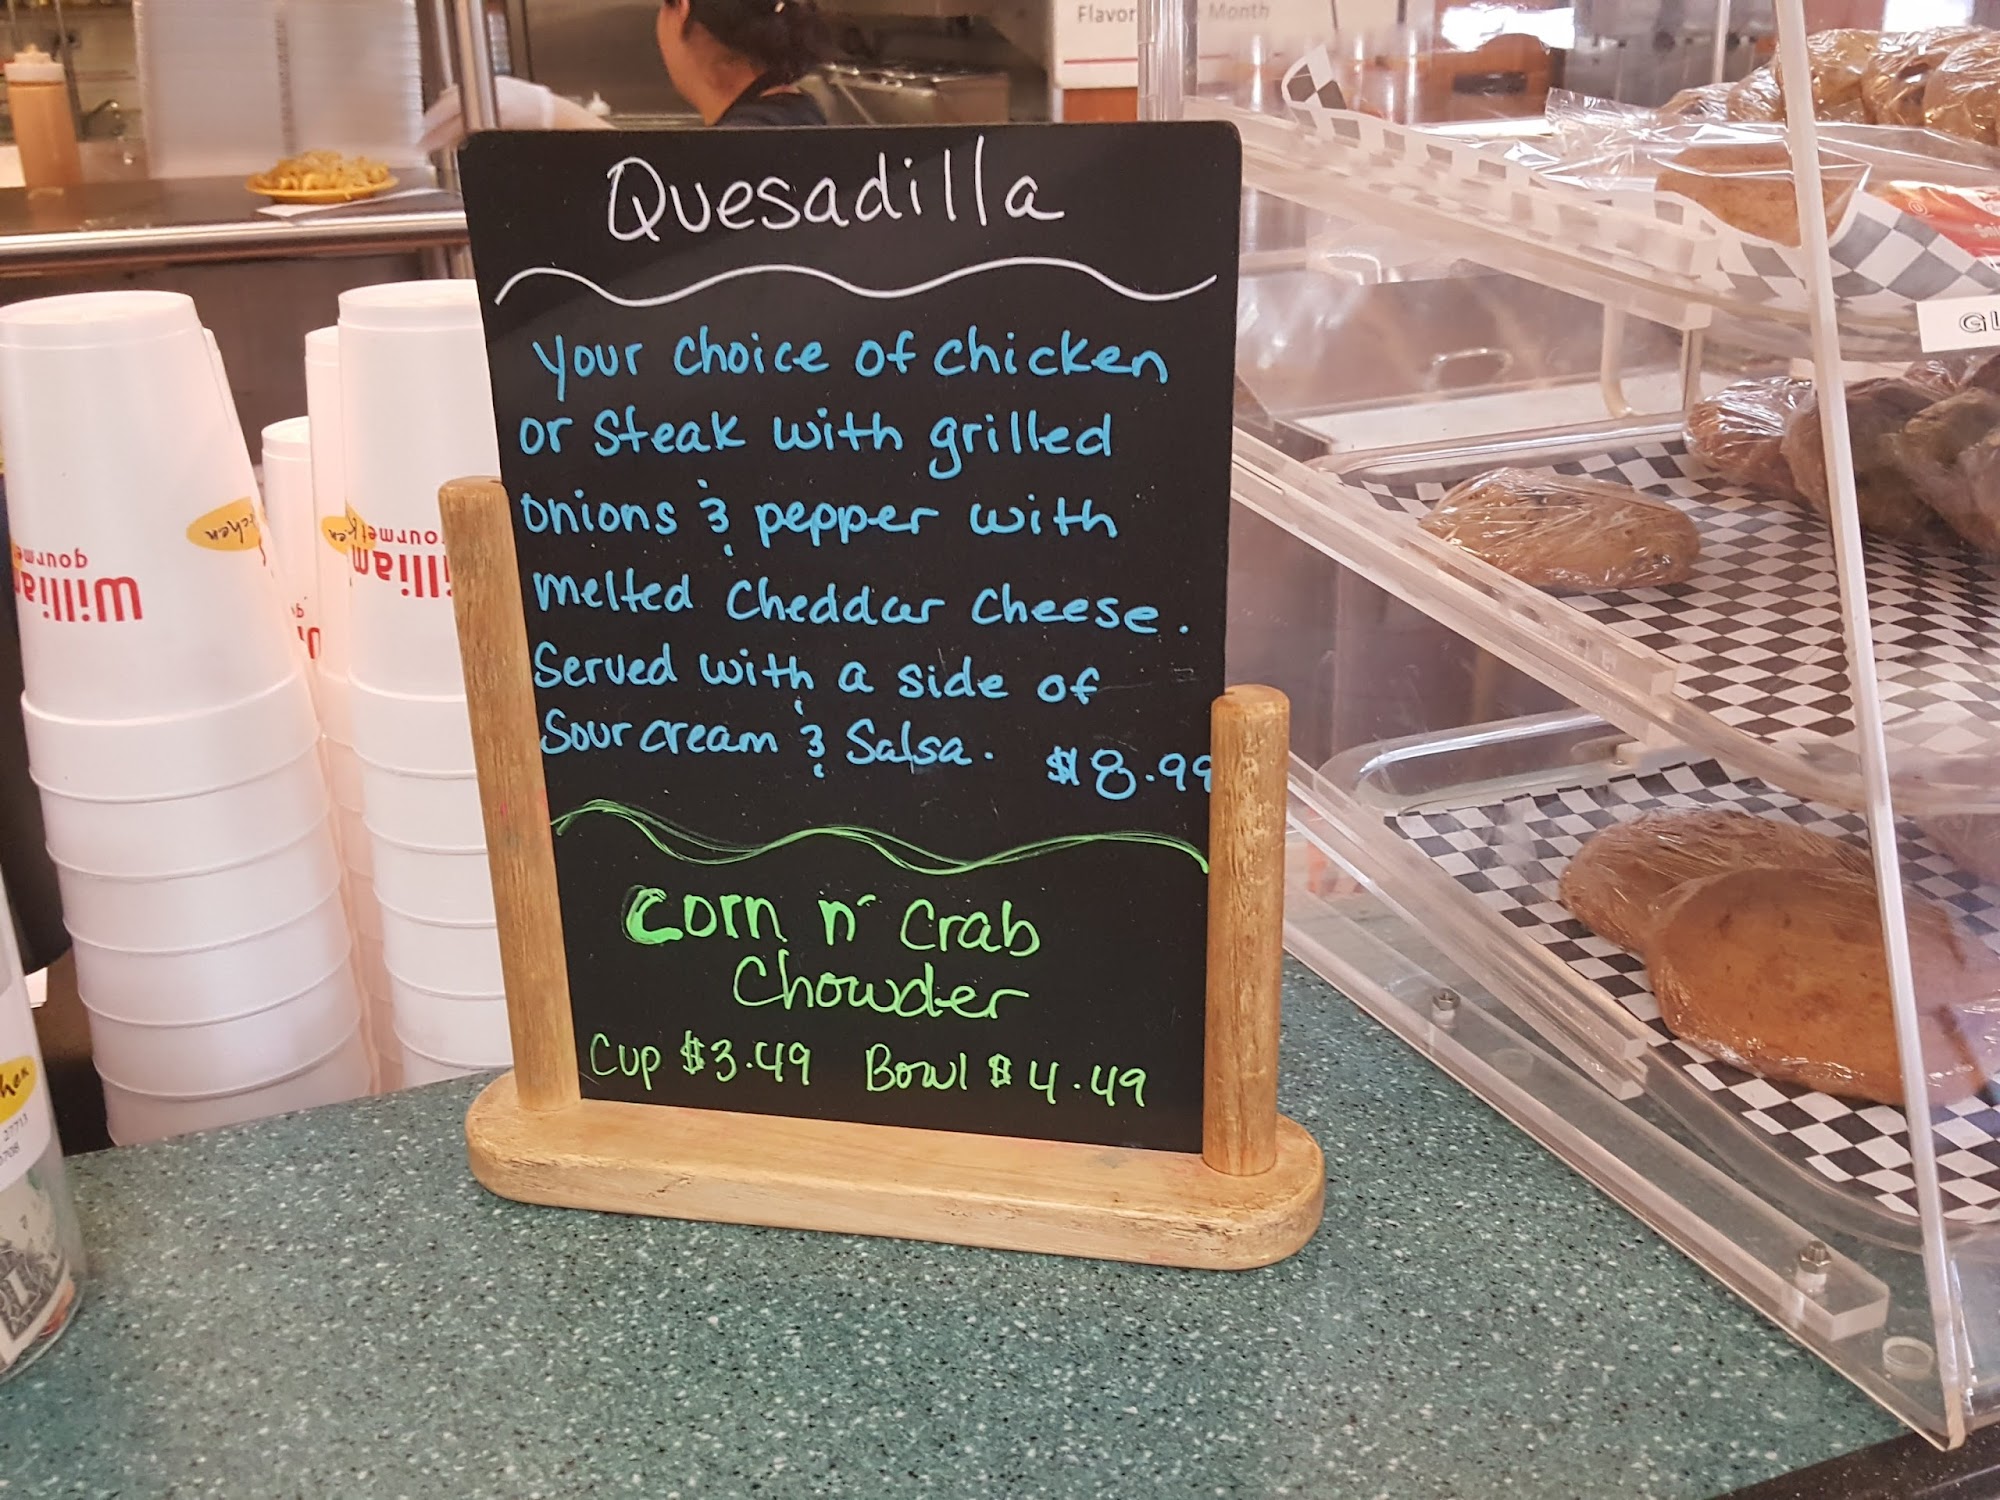 Flavor Month
Quesadilla
Your choice of chicken
or steak with grilled
onions & pepper with
melted cheddar cheese.
Served with a side of
Sour cream & Salsa. $8.99
Corn n' Crab
Chowder
Cup $3.49 Bowl $4.49
William
gourmet
chen
William
gourmet
27713